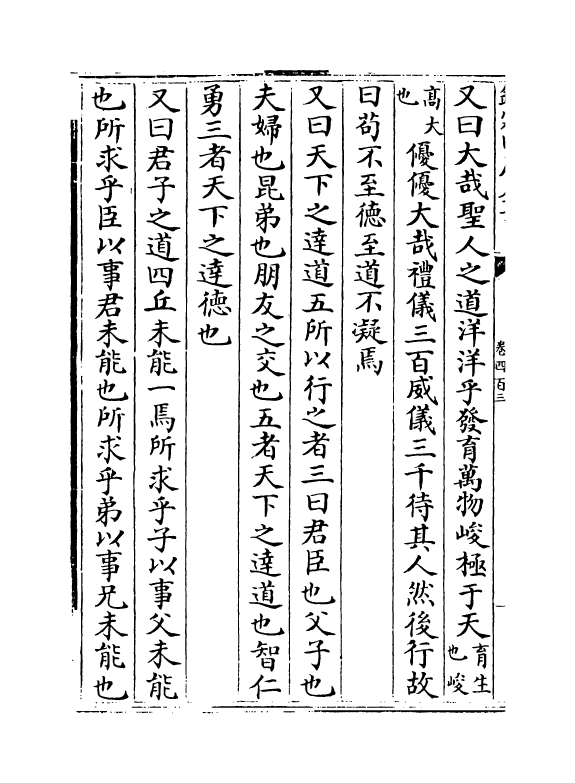 卷四百三
又曰大哉聖人之道洋洋乎發育萬物峻極于天育生也峻
高大也優優大哉禮儀三百威儀三千待其人然後行故
曰茍不至德至道不凝焉
又曰天下之達道五所以行之者三曰君臣也父子也
夫婦也昆弟也朋友之交也五者天下之達道也智仁
勇三者天下之達德也
又曰君子之道四丘未能一焉所求乎子以事父未能
也所求乎臣以事君未能也所求乎弟以事兄未能也